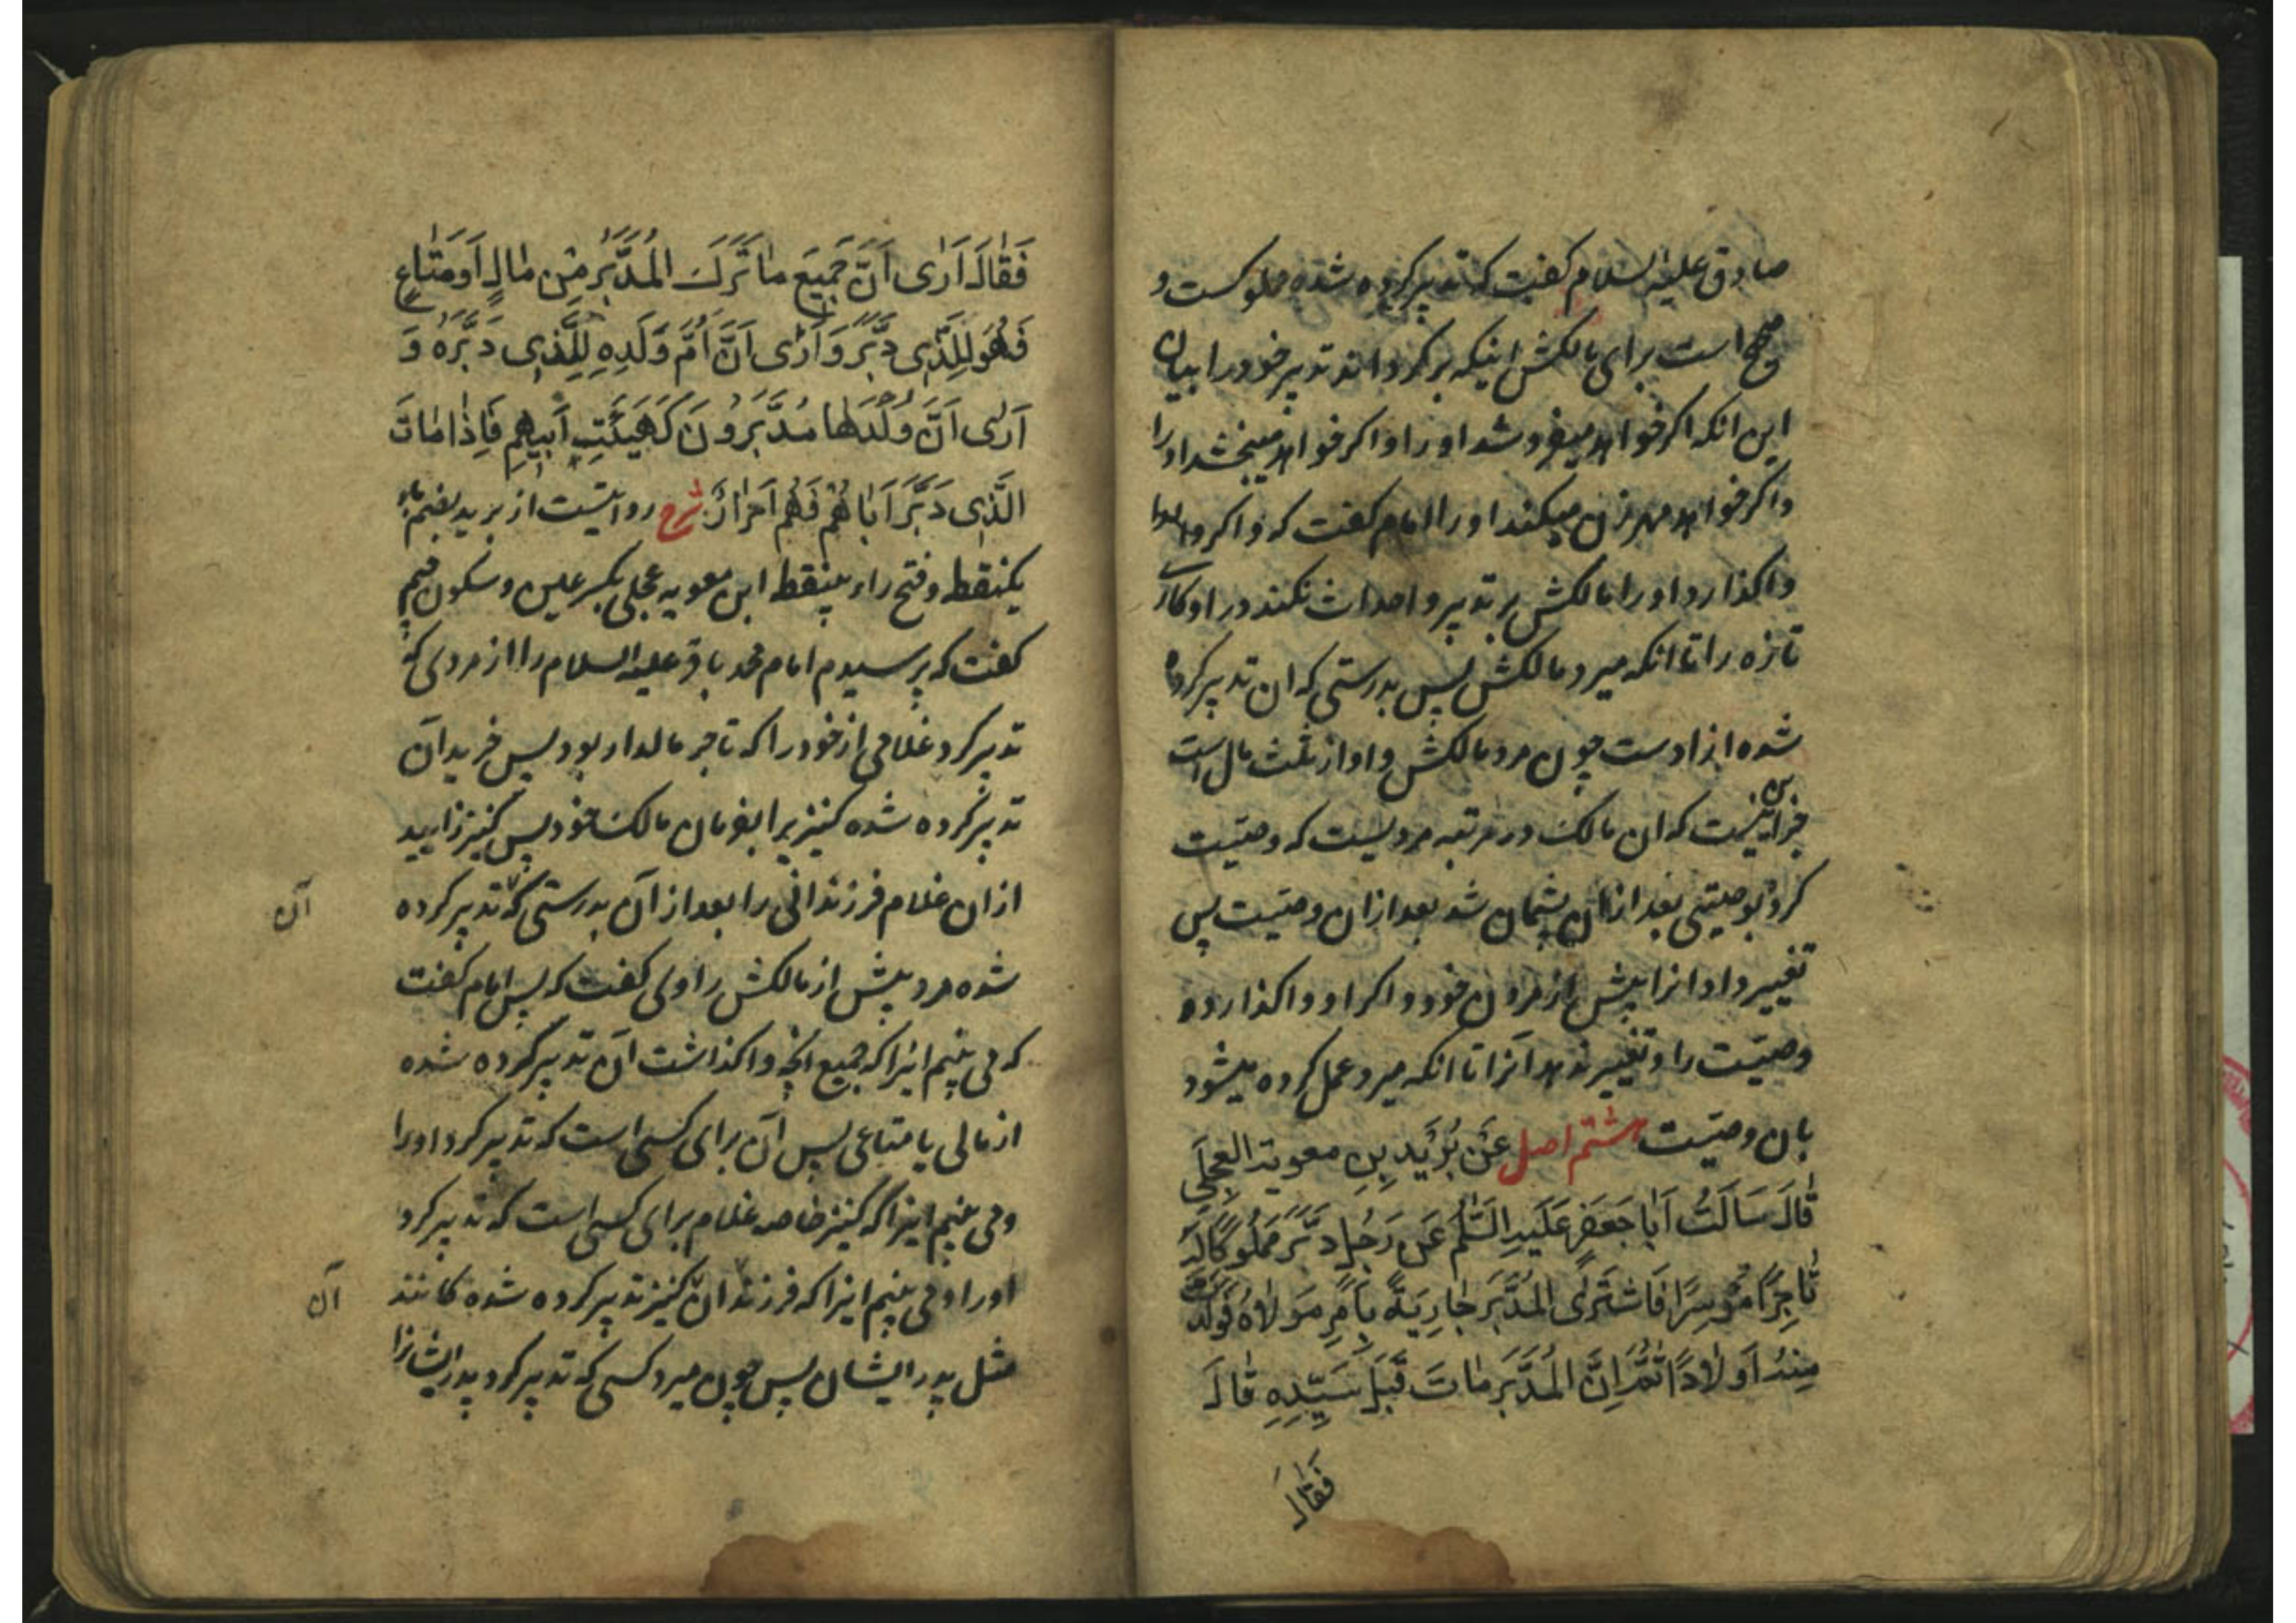 صادق علیه السلام کفت که تدبیر کرده شده مملوکست و
صحیح است برای مالکش اینکه برکرداند تدبیر خود را بیان
این انکه اکر خواهد میفروشد او را و اکر خواهد میبخشد او را
و اکر خواهد مهر زن میکند او را امام کفت که و اکر
واکذارد او را مالکش بر تدبیر و احداث نکند در او کاری
تازه را تا انکه میرد مالکش پس بدرستی که ان تدبیر کرده
شده ازادست چون مرد مالکش و او از ثلث مال است
جز این نیست که ان مالک در مرتبه مردیست که وصیّت
کرد بوصیتی بعد ازان پشیمان شد بعد ازان وصیّت پس
تغییر داد انرا پیش از مردن خود و اکر او واکذارد
وصیّت را و تغییر ندهد آنرا تا انکه میرد عمل کرده میشود
بان وصیّت هشتم اصل عَنْ بُرَیْدِ بِنِ معویة العِجْلِی
قٰالَ سَاَلْتُ اَبٰا جَعْفَرٍ عَلَیْهِ السَّلٰمُ عَنْ رَجُلٍ دَبَّرَ مَمْلُوکًا لَهُ
تٰاجِرًا مُوسِرًا فَاشْتَرَی الْمُدَبَّرُ جٰارِیَةً بِاَمْرِ مَوْلٰاهُ فَوَلَدَتْ
مِنْهُ اَوْلٰادًا ثُمَّ اِنَّ الْمُدَبَّرَ مٰاتَ قَبْلَ سَیِّدِهِ قٰالَ
فَقٰالَ
فَقٰالَ اَرٰی اَنَّ جَمِیعَ مٰا تَرَکَ الْمُدَبَّرُ مِنْ مٰالٍ اَوْ مَتٰاعٍ
فَهُوَ لِلَّذِی دَبَّرَ وَ اَرٰی اَنَّ اُمَّ وَلَدِهِ لِلَّذِی دَبَّرَهُ وَ
اَرٰی اَنَّ وُلْدَهٰا مُدَبَّرُونَ کَهَیْئَتِ اَبِیهِمْ فَاِذٰا مٰاتَ
الَّذِی دَبَّرَ اَبٰاهُمْ فَهُمْ اَحْرٰارٌ شرح روایتست از برید بضم باء
یکنقطه و فتح راء بینقطه ابن معویه عجلی بکسر عین و سکون جیم
کفت که پرسیدم امام محمد باقر علیه السلام را از مردی که
تدبیر کرد غلامی از خود را که تاجر مالدار بود پس خرید آن
تدبیر کرده شده کنیزیرا بفرمان مالک خود پس کنیز زایید
از ان غلام فرزندانی را بعد از آن بدرستی که تدبیر کرده
آن
شده مرد پیش از مالکش راوی کفت که پس امام کفت
که می بینم اینرا که جمیع انچه واکذاشت آن تدبیر کرده شده
از مالی یا متاعی پس آن برای کسی است که تدبیر کرد او را
و می بینم اینرا که کنیز خاصه غلام برای کسی است که تدبیر کرد
او را و می بینم اینرا که فرزندان کنیز تدبیر کرده شده کانند
آن
مثل پدر ایشان پس چون میرد کسی که تدبیر کرد پدر ایشانرا